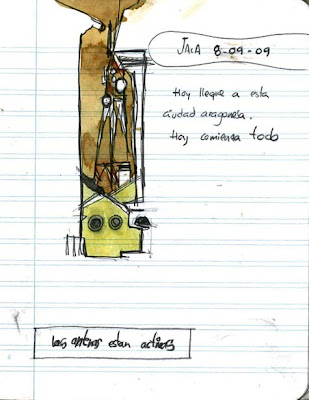 JACA 8-09-09
Hoy llegue a esta
ciudad aragonesa.
Hoy comienza todo
las antenas estan activas